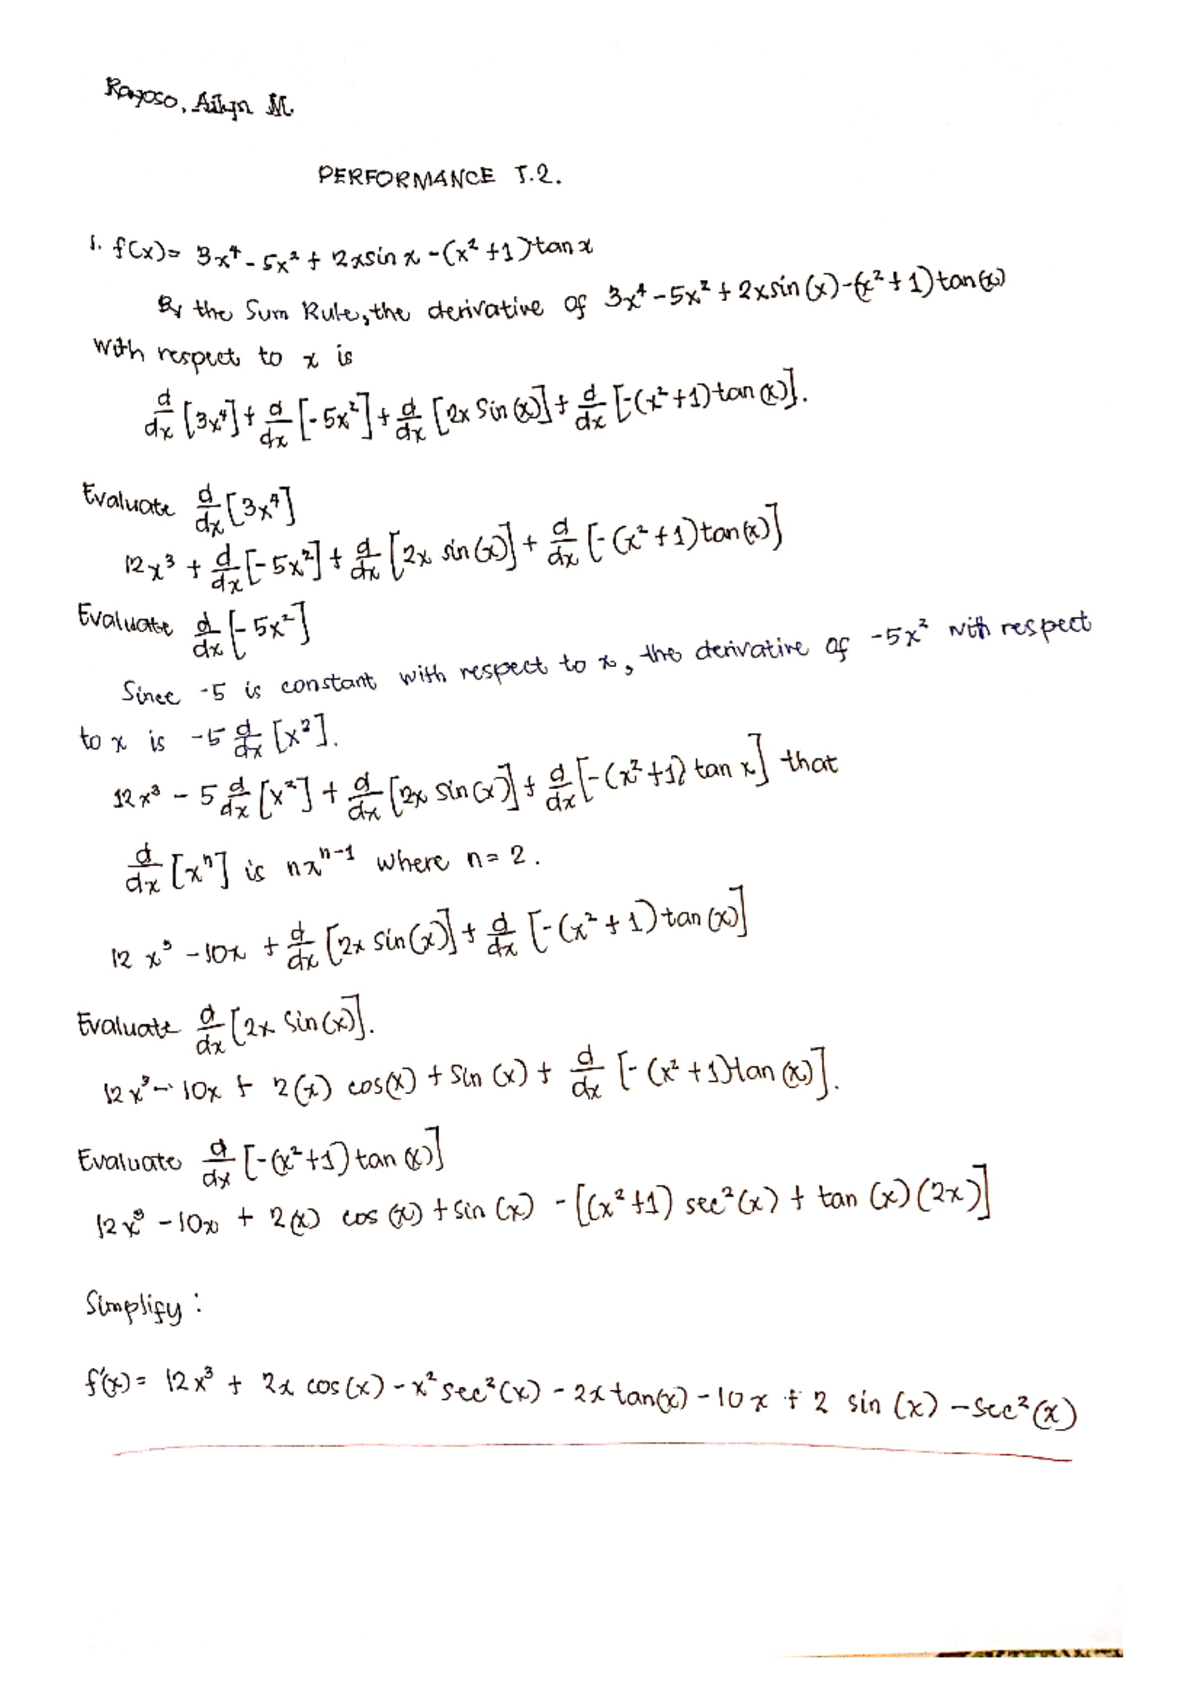 Rayoso, Ailyn M.
PERFORMANCE T.2.
1. f(x)= 3x⁴ - 5x² + 2xsin x - (x² +1)tan x
By the Sum Rule, the derivative of 3x⁴ - 5x² + 2xsin(x) - (x² + 1)tan(x)
with respect to x is
d/dx [3x⁴] + d/dx [-5x²] + d/dx [2x Sin(x)] + d/dx [-(x² +1)tan(x)].
Evaluate d/dx [3x⁴]
12x³ + d/dx [-5x²] + d/dx [2x sin(x)] + d/dx [-(x² +1)tan(x)]
Evaluate d/dx [-5x²]
Since -5 is constant with respect to x, the derivative of -5x² with respect
to x is -5 d/dx [x²].
12x³ - 5 d/dx [x²] + d/dx [2x sin(x)] + d/dx [-(x² +1) tan x] that
d/dx [xⁿ] is nxⁿ⁻¹ where n = 2.
12 x³ - 10x + d/dx [2x sin(x)] + d/dx [-(x² + 1)tan(x)]
Evaluate d/dx [2x Sin(x)].
12 x³ - 10x + 2(x) cos(x) + Sin (x) + d/dx [-(x² + 1)tan(x)].
Evaluate d/dx [-(x² +1) tan (x)]
12 x³ - 10x + 2(x) cos (x) + sin (x) - [(x² +1) sec²(x) + tan (x)(2x)]
Simplify :
f'(x) = 12x³ + 2x cos(x) - x² sec²(x) - 2x tan(x) - 10x + 2 sin (x) - sec²(x)